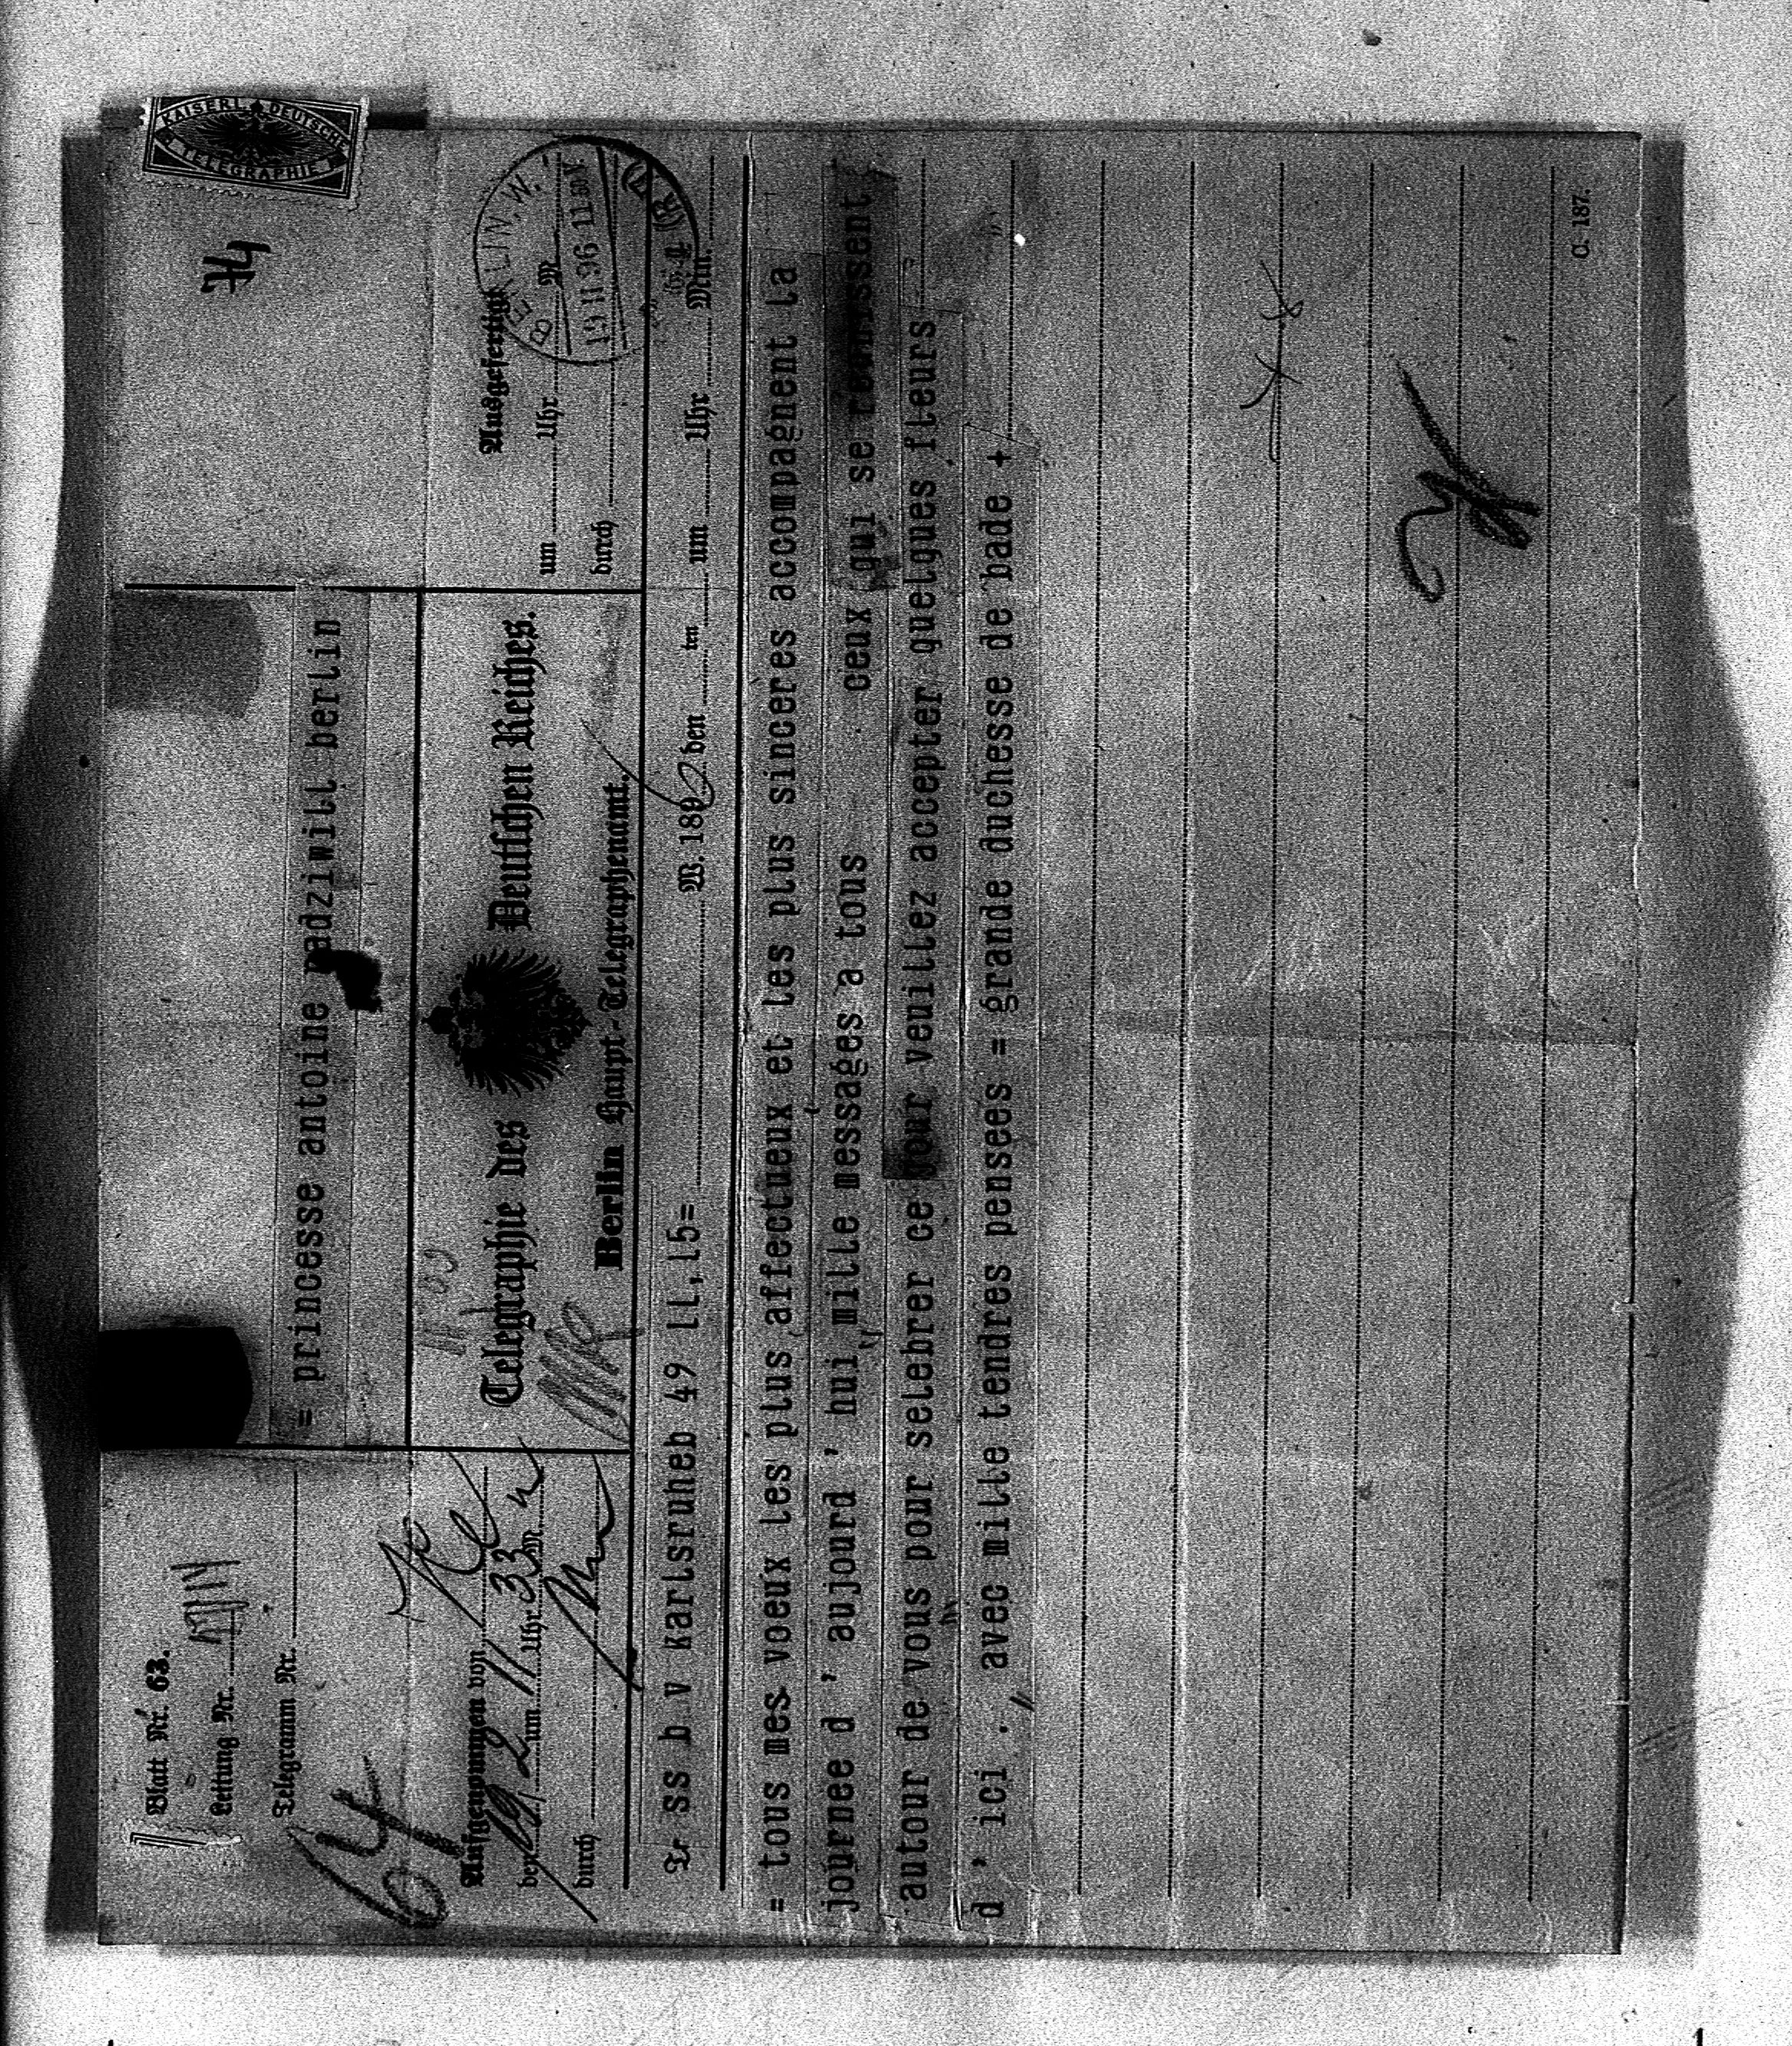 Blatt Nr. 63.
Leitung Nr.
Telegramm Nr.
64
= princesse antoine radziwill berlin
74
KAISERL. DEUTSCHE
TELEGRAPHIE
Aufgenommen von
den 19/2 um 11 Uhr 33 M
durch
Telegraphie des Deutschen Reiches.
Berlin Haupt-Telegraphenamt.
Ausgefertigt
um Uhr M
durch
BERLIN. W.
Tr ss b v karlsruheb 49 ll,l5= W. 1896 den ten um Uhr Min.
= tous mes voeux les plus affectueux et les plus sinceres accompagnent la
journee d ' aujourd ' hui mille messages a tous ceux qui se reunissent
autour de vous pour selebrer ce jour veuillez accepter quelques fleurs
d ' ici . avec mille tendres pensees = grande duchesse de bade +
C. 187.